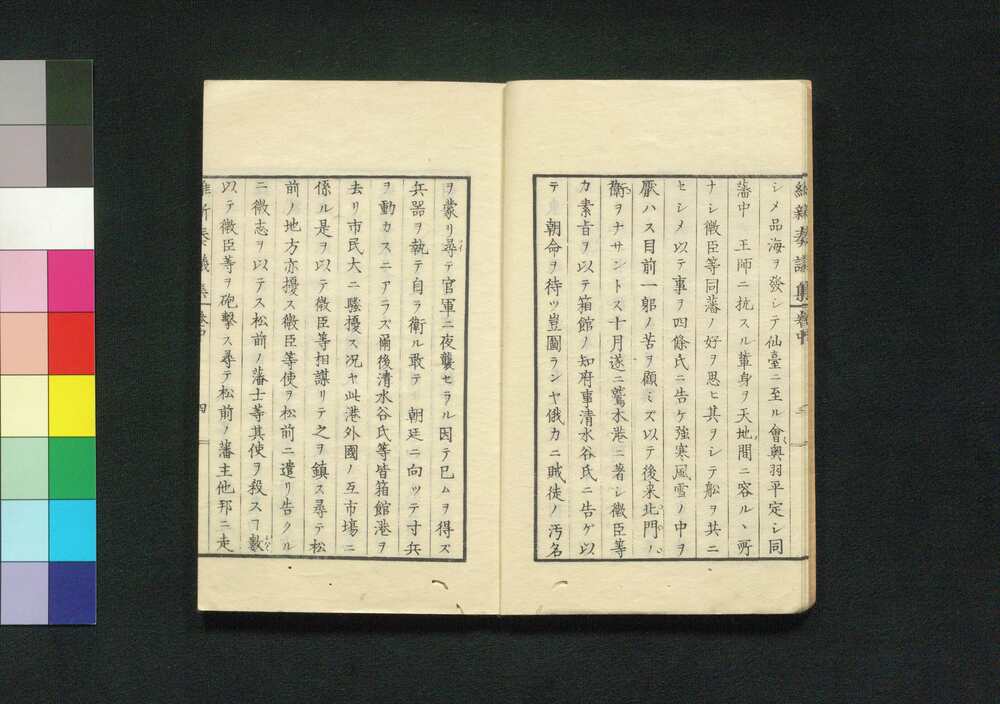 シメ品海ヲ發シテ仙臺ニ至ル會奥羽平定シ同
藩中 王師ニ抗スル輩身ヲ天地間ニ容ルヽ所
ナシ微臣等同藩ノ好ヲ思ヒ其ヲシテ船ヲ共ニ
セシメ以テ事ヲ四條氏ニ告ケ強寒風雪ノ中ヲ
厭ハス目前一躬ノ苦ヲ顧ミズ以テ後来北門ノ
衛ヲナサントス十月遂ニ鷲木港ニ著シ微臣等
カ素旨ヲ以テ箱館ノ知府事清水谷氏ニ告ゲ以
テ 朝命ヲ待ツ豈圖ランヤ俄カニ賊徒ノ汚名
ヲ蒙リ尋テ官軍ニ夜襲セラル因テ已ムヲ得ズ
兵器ヲ執テ自ラ衛ル敢テ 朝廷ニ向ツテ寸兵
ヲ動カスニアラズ爾後清水谷氏等皆箱館港ヲ
去リ市民大ニ騒擾ス况ヤ此港外國ノ互市場ニ
係ル是ヲ以テ微臣等相謀リテ之ヲ鎮ス尋テ松
前ノ地方亦擾ス微臣等使ヲ松前ニ遣リ告クル
ニ微志ヲ以テス松前ノ藩士等其使ヲ殺スヿ數
以テ微臣等ヲ砲撃ス尋テ松前ノ藩主他邦ニ走
維新奏議集 巻中 四